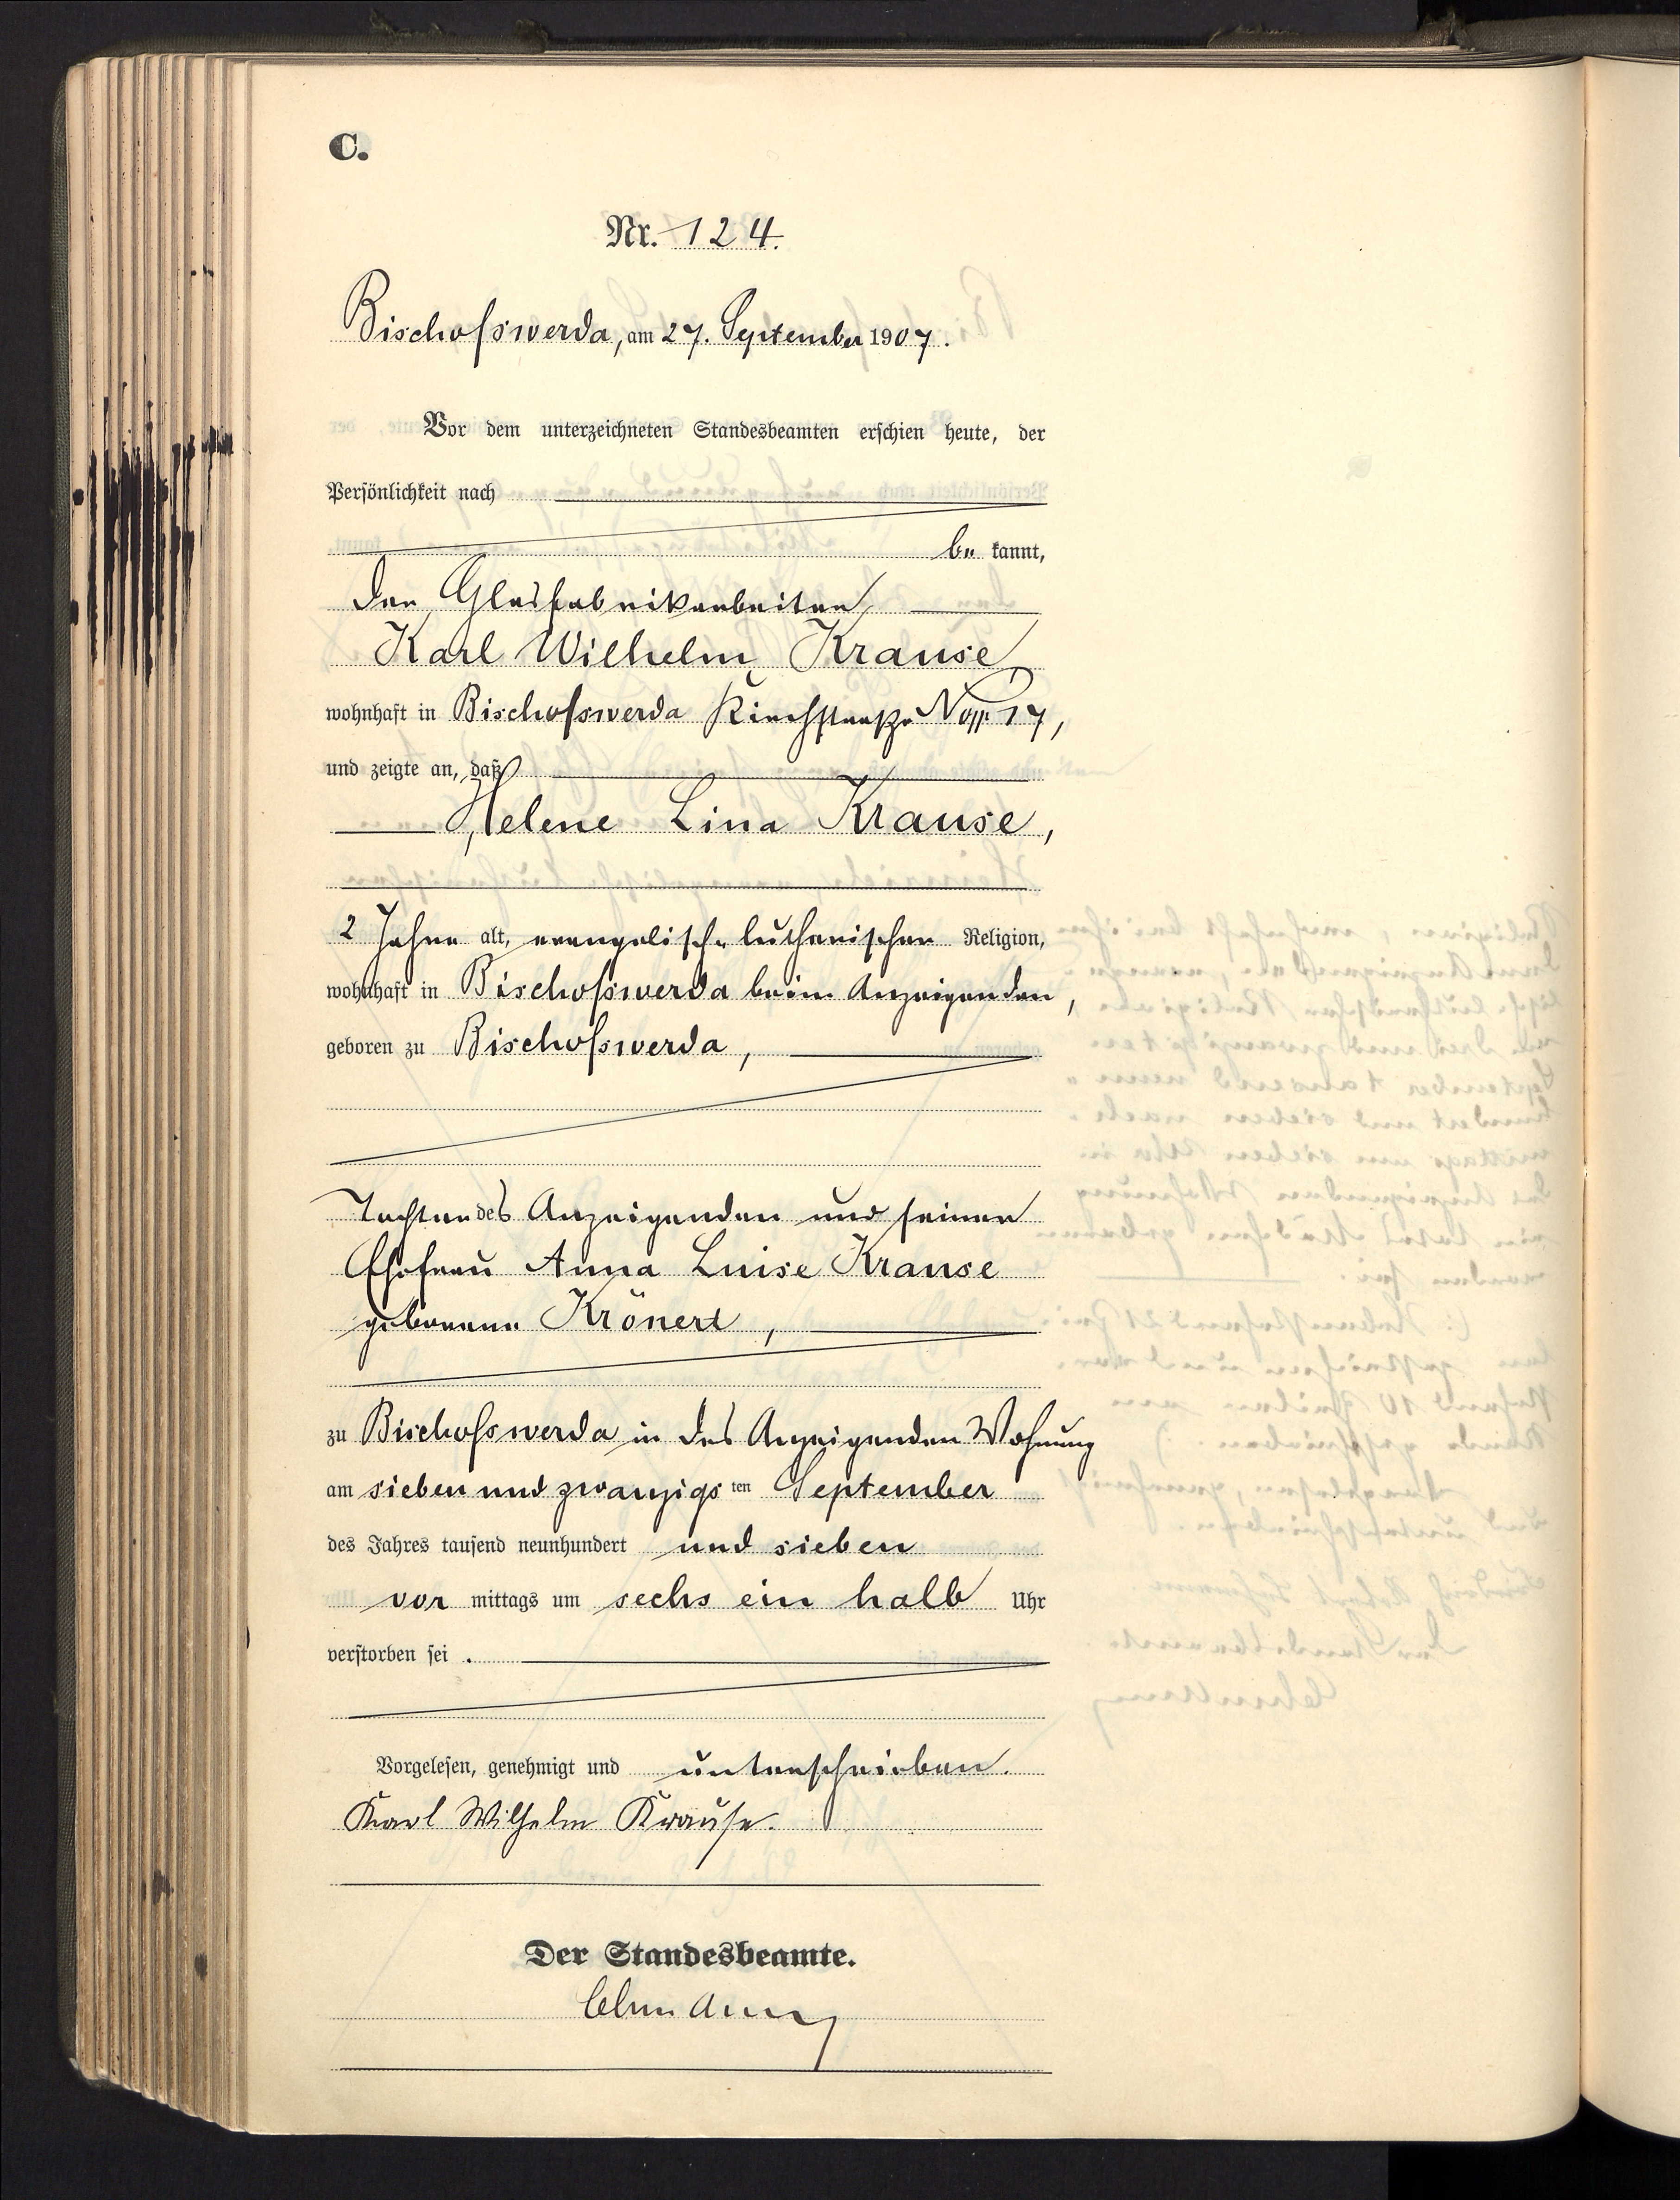 C.
Nr. 124.
Bischofswerda, am 27. September 1907.
Vor dem unterzeichneten Standesbeamten erschien heute, der
Persönlichkeit nach
be kannt,
der Glasfabrikarbeiter
Karl Wilhelm Krause,
wohnhaft in Bischofswerda Kirchstraße No 17,
und zeigte an, daß
Helene Lina Krause,
2 Jahre alt, evangelisch-lutherischer Religion,
wohnhaft in Bischofswerda beim Anzeigenden,
geboren zu Bischofswerda,
Tochter des Anzeigenden und seiner
Ehefrau Anna Luise Krause
geborene Krönert,
zu Bischofswerda in des Anzeigenden Wohnung
am sieben und zwanzigs ten September
des Jahres tausend neunhundert und sieben
vor mittags um sechs ein halb Uhr
verstorben sei.
Vorgelesen, genehmigt und unterschrieben.
Karl Wilhelm Krause.
Der Standesbeamte.